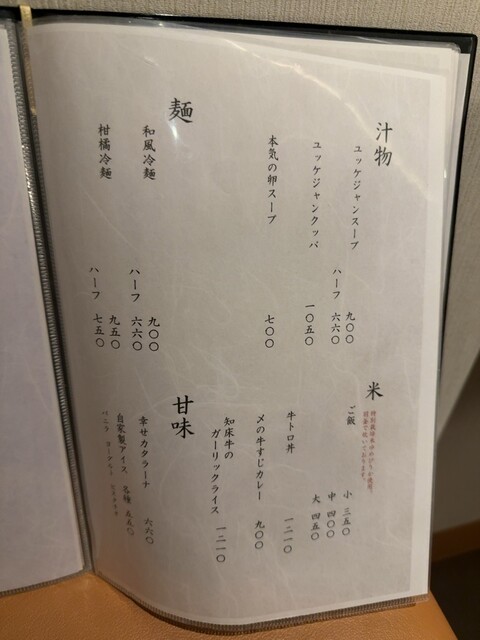 汁物
ユッケジャンスープ 九〇〇
ハーフ 六六〇
ユッケジャンクッパ 一〇五〇
本気の卵スープ 七〇〇
麺
和風冷麺 九〇〇
ハーフ 六六〇
柑橘冷麺 九五〇
ハーフ 七五〇
米
ご飯
小 三五〇
中 四〇〇
大 四五〇
牛トロ丼 一二一〇
〆の牛すじカレー 九〇〇
知床牛の
ガーリックライス 一二一〇
甘味
幸せカタラーナ 六六〇
自家製アイス 各種 五五〇